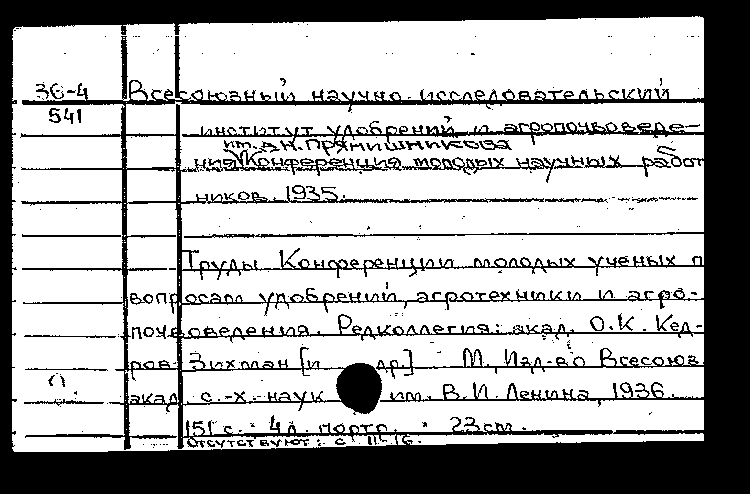 36-4 Всесоюзный научно-исследовательский
541
институт удобрений и агропочвоведе-
им. Д.Н. Прянишникова
ния. Конференция молодых научных работ
ников. 1935.
Труды Конференции молодых ученых п
вопросам удобрений, агротехники и агро-
почвоведения. Редколлегия: акад. О.К. Кед-
ров-Зихман [и др.] М., Изд-во Всесоюз.
акад. с.-х. наук им. В.И. Ленина, 1936.
151 с. 4 л. портр. 23 cm.
Отсутствуют: с. III-16.